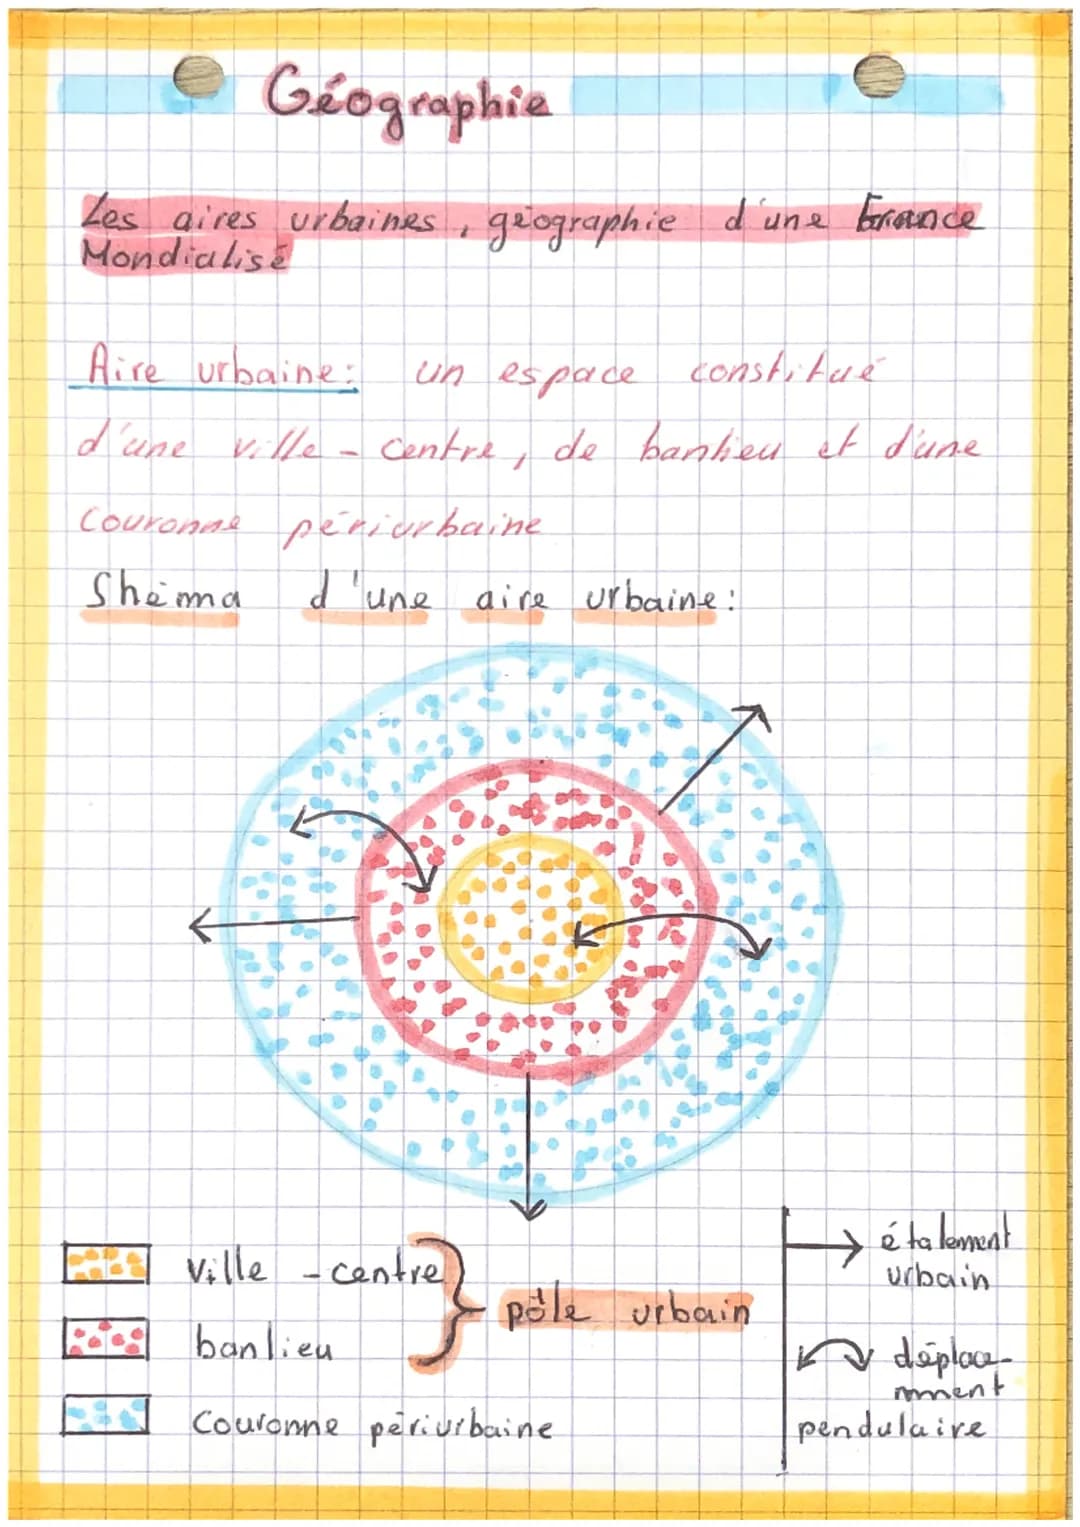 Géographie
Les aires urbaines, géographie d'une France
Mondialisé
Aire urbaine: un espace constitué
d'une ville - centre, de banlieu et d'une
couronne périurbaine
Shéma d'une aire urbaine:
ville - centre
banlieu
couronne périurbaine
pôle urbain
étalement
urbain
déplace-
mment
pendulaire